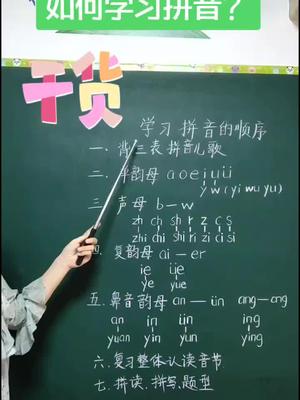 如何学习拼音？
干货
学习拼音的顺序
一、背三表 拼音儿歌
二、单韵母 a o e i u ü
y w (yi wu yu)
三、声母 b—w
zh ch sh r z c s
zhi chi shi ri zi ci si
四、复韵母 ai—er
ie üe
ye yue
五、鼻音韵母 an—ün ang—ong
an in ün ing
yuan yin yun ying
六、复习整体认读音节
七、拼读、拼写、题型